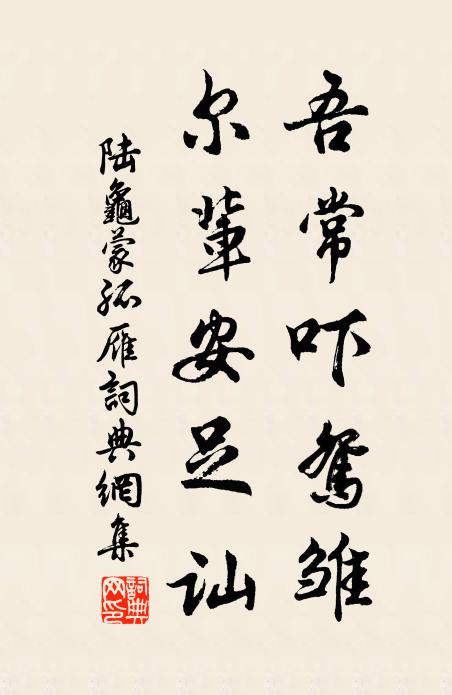 吾常吓鸳雏
尔辈安足讪
陆龜蒙孤雁詞典網集
詞典网印